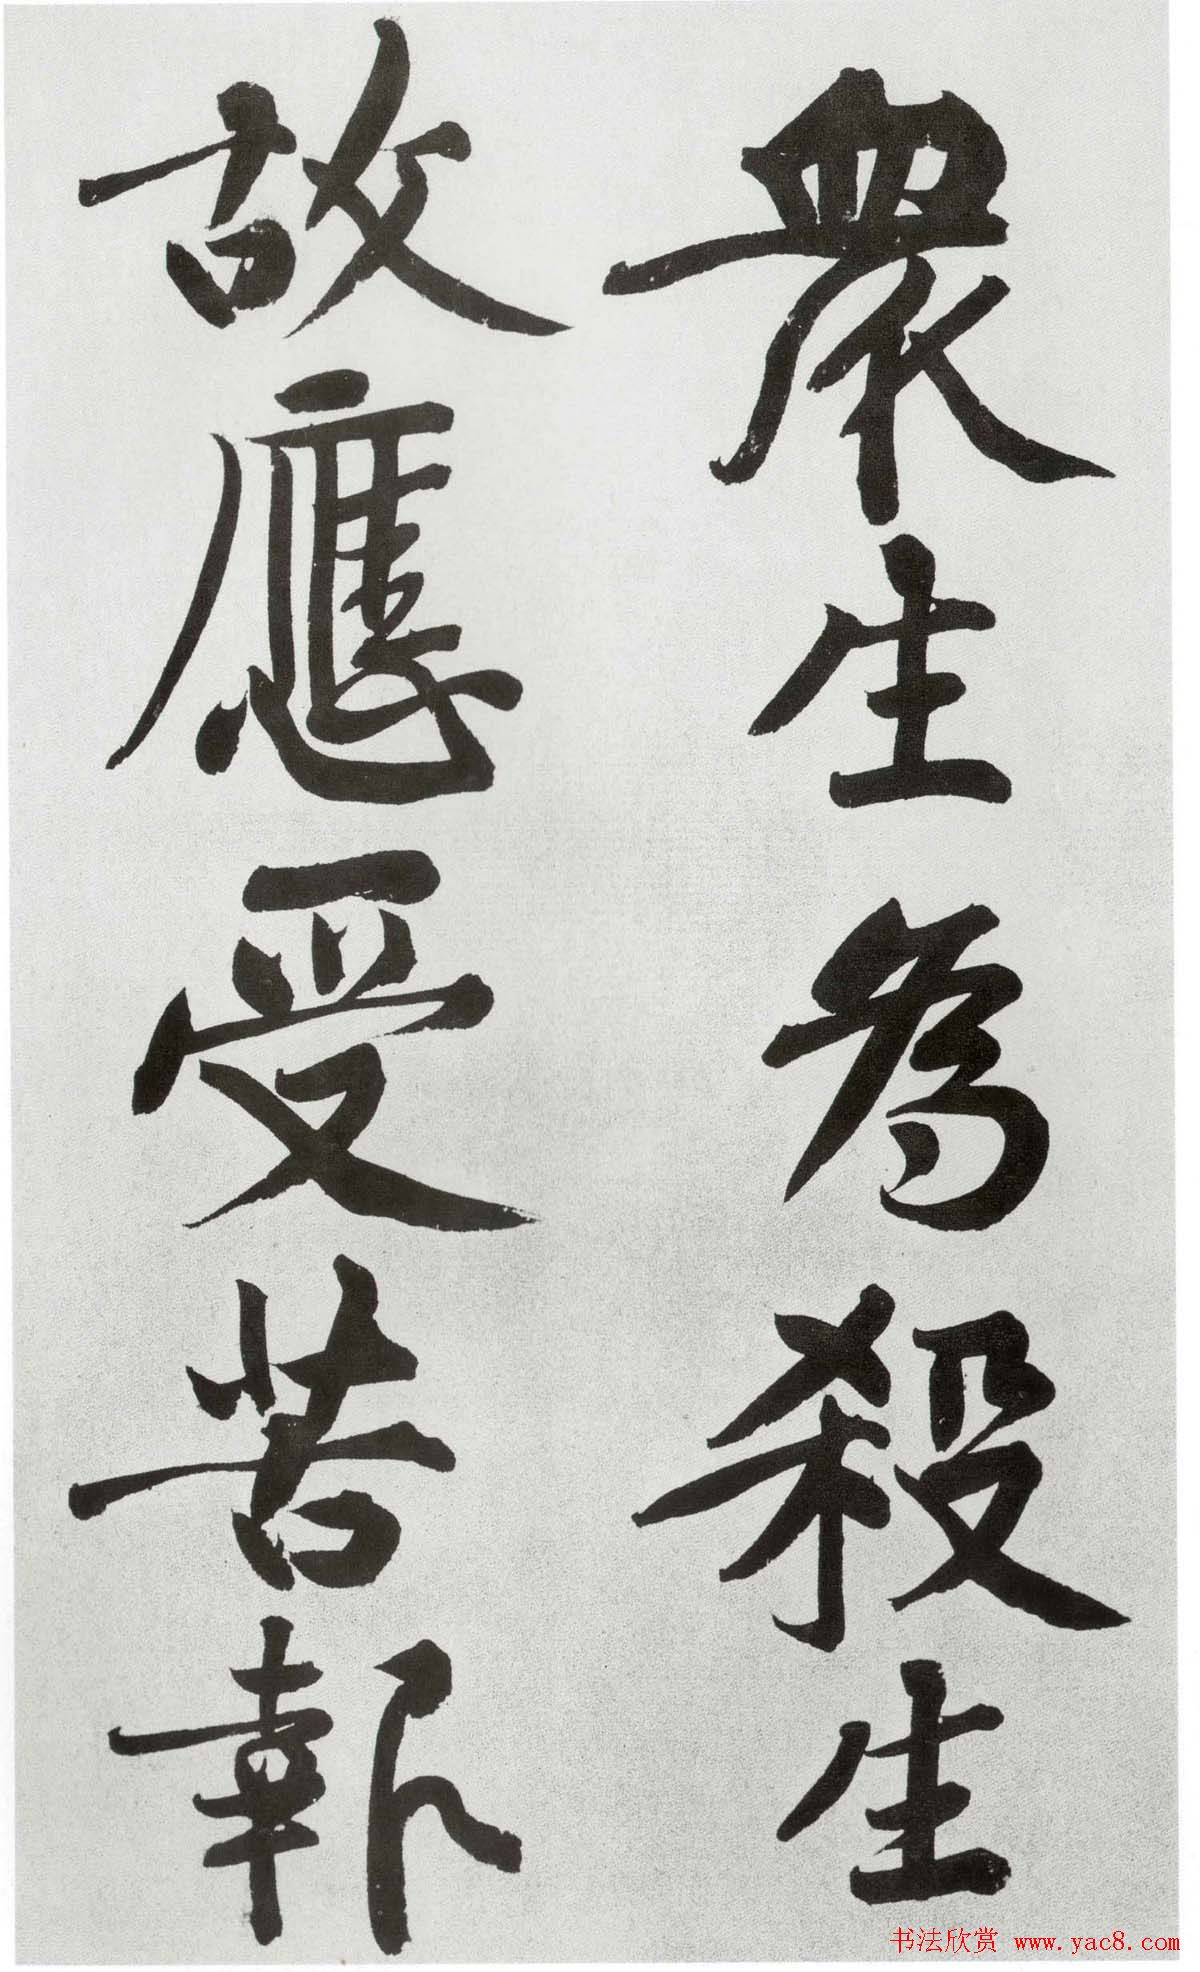 眾生為殺生
故應受苦報
书法欣赏 www.yac8.com